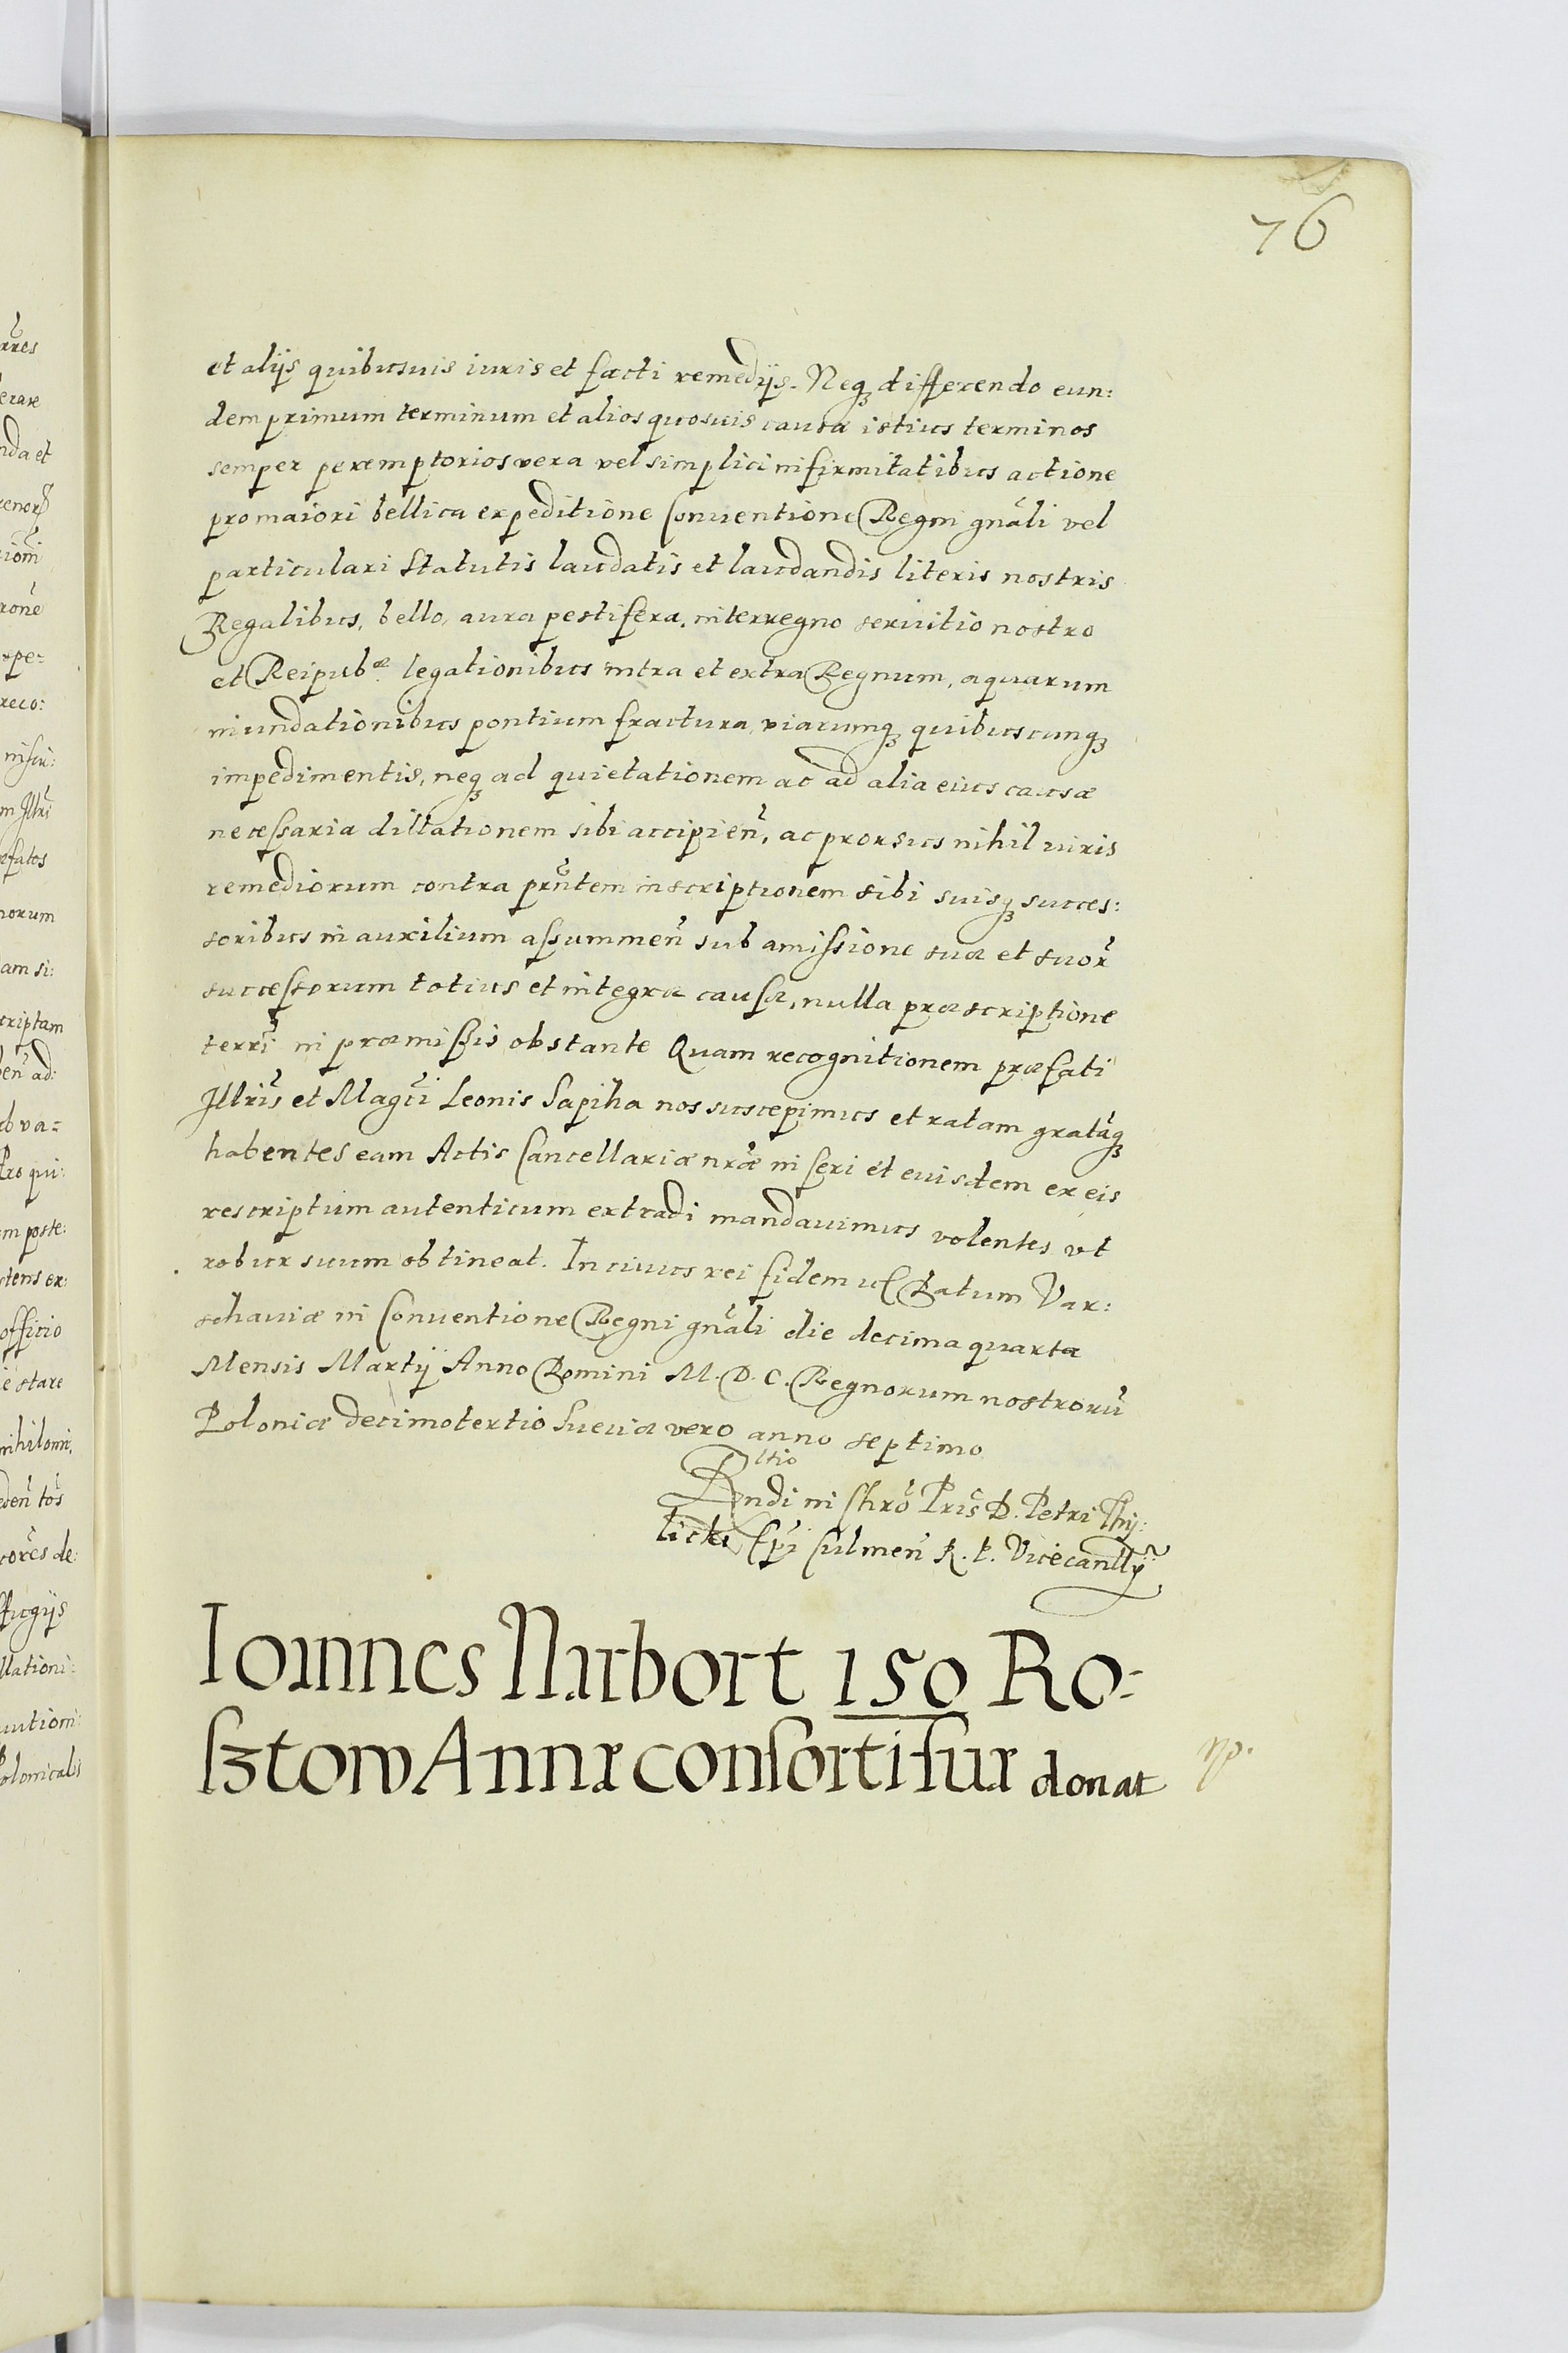 76
et alijs quibusuis iuris et facti remedijs. Neqꝫ differendo eun:
dem primum terminum et alios quosuis causa istius terminos
semper peremptorios vera vel simplici infirmitatibus actione
pro maiori bellica expeditione Conuentione Regni gnãli vel
particulari Statutis laudatis et laudandis literis nostris
Regalibus, bello, aura pestifera, interregno seruitio nostro
et Reipubᵃᵉ. legationibus intra et extra Regnum, aquarum
inundationibus pontium fractura, viarumqꝫ quibuscunqꝫ
impedimentis, neqꝫ ad quietationem ac ad alia eius causæ
necessaria dillationem sibi accipieñ, ac prorsus nihil iuris
remediorum contra prñtem inscriptionem sibi suisqꝫ succes:
soribus in auxilium assummeñ sub amissione suæ et suor̃
successorum totius et integræ causæ, nulla præscriptione
terrĩ in præmissis obstante Quam recognitionem præfati
Illris̃ et Magci̇̃ Leonis Sapiha nos suscepimus et ratam gratãqꝫ
habentes eam Actis Cancellariæ nr̃æ inseri et euisdem ex eis
rescriptum autenticum extradi mandauimus volentes vt
robur suum obtineat. In cuius rei fidem Datum Var:
schauiæ in Conuentione Regni gnãli die decima quarta
Mensis Martij Anno Domini M. D. C. Regnorum nostrorũ
Poloniæ decimotertio Sueuiæ vero anno septimo
Rltio
Rndi in Chrõ Pris̃ D. Petri Thy:
licki Epĩ Culmeñ R. P. Vicecancllÿ
Ioannes Narbort 150 Ro-
sztow Annæ consorti suæ donat